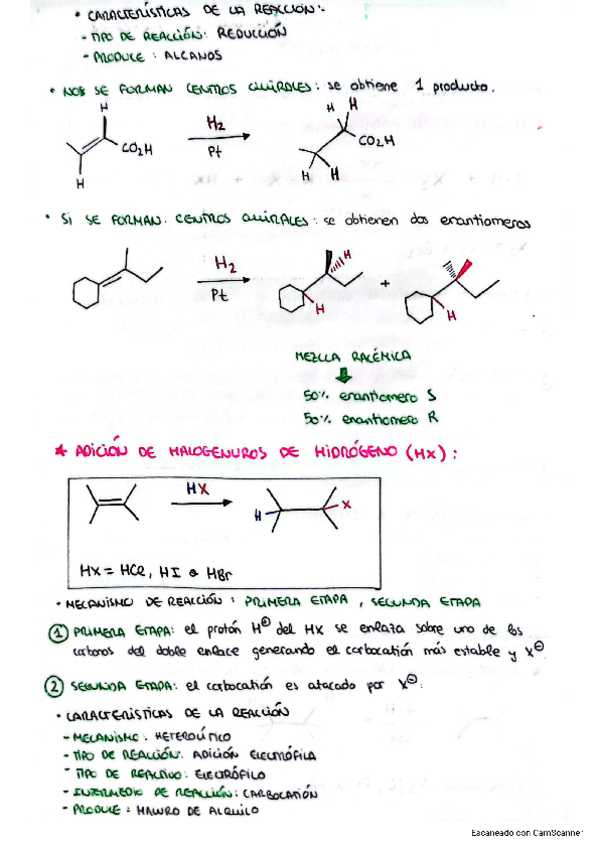 • CARACTERÍSTICAS DE LA REACCIÓN:
- TIPO DE REACCIÓN: REDUCCIÓN
- PRODUCE: ALCANOS
• NOS SE FORMAN CENTROS QUIRALES: se obtiene 1 producto.
H
CO2H
H
H2
Pt
H H
CO2H
H H
• SI SE FORMAN CENTROS QUIRALES: se obtienen dos enantiomeros
H2
Pt
H
H
+
H
MEZCLA RACÉMICA
50% enantiomero S
50% enantiomero R
* ADICIÓN DE HALOGENUROS DE HIDRÓGENO (HX):
HX
H
X
HX = HCl, HI o HBr
• MECANISMO DE REACCIÓN: PRIMERA ETAPA, SEGUNDA ETAPA
① PRIMERA ETAPA: el protón H⊖ del HX se enlaza sobre uno de los
carbonos del doble enlace generando el carbocatión más estable y X⊖
② SEGUNDA ETAPA: el carbocatión es atacado por X⊖.
• CARACTERÍSTICAS DE LA REACCIÓN
- MECANISMO: HETEROLÍTICO
- TIPO DE REACCIÓN: ADICIÓN ELECTRÓFILA
- TIPO DE REACTIVO: ELECTRÓFILO
- INTERMEDIO DE REACCIÓN: CARBOCATIÓN
- PRODUCE: HALURO DE ALQUILO
Escaneado con CamScanner